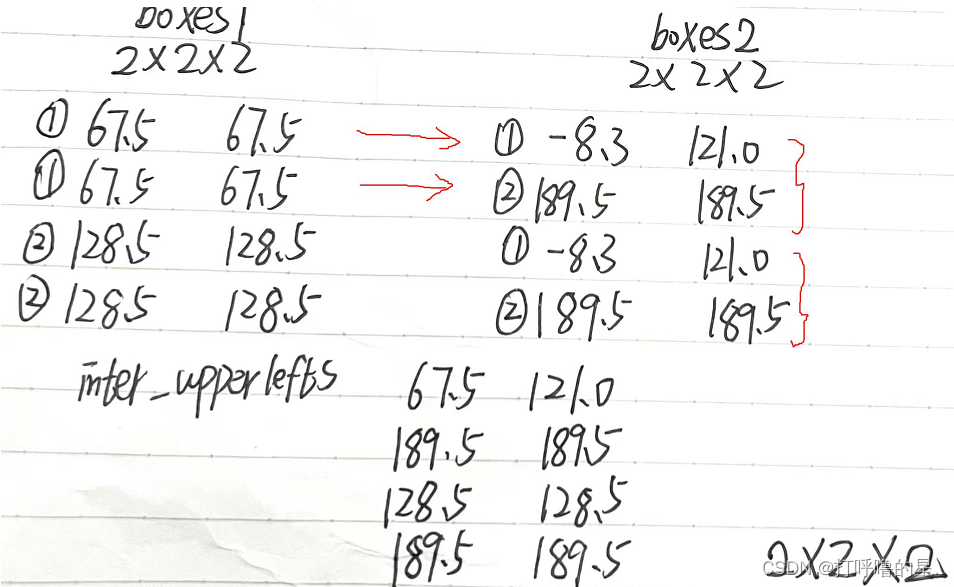 boxes1 boxes2
2×2×2 2×2×2
① 67.5 67.5 → ① -8.3 121.0
① 67.5 67.5 → ② 189.5 189.5
② 128.5 128.5 ① -8.3 121.0
② 128.5 128.5 ② 189.5 189.5
inter_upperlefts 67.5 121.0
189.5 189.5
128.5 128.5
189.5 189.5 2×2×2
CSDN @打呼噜的星